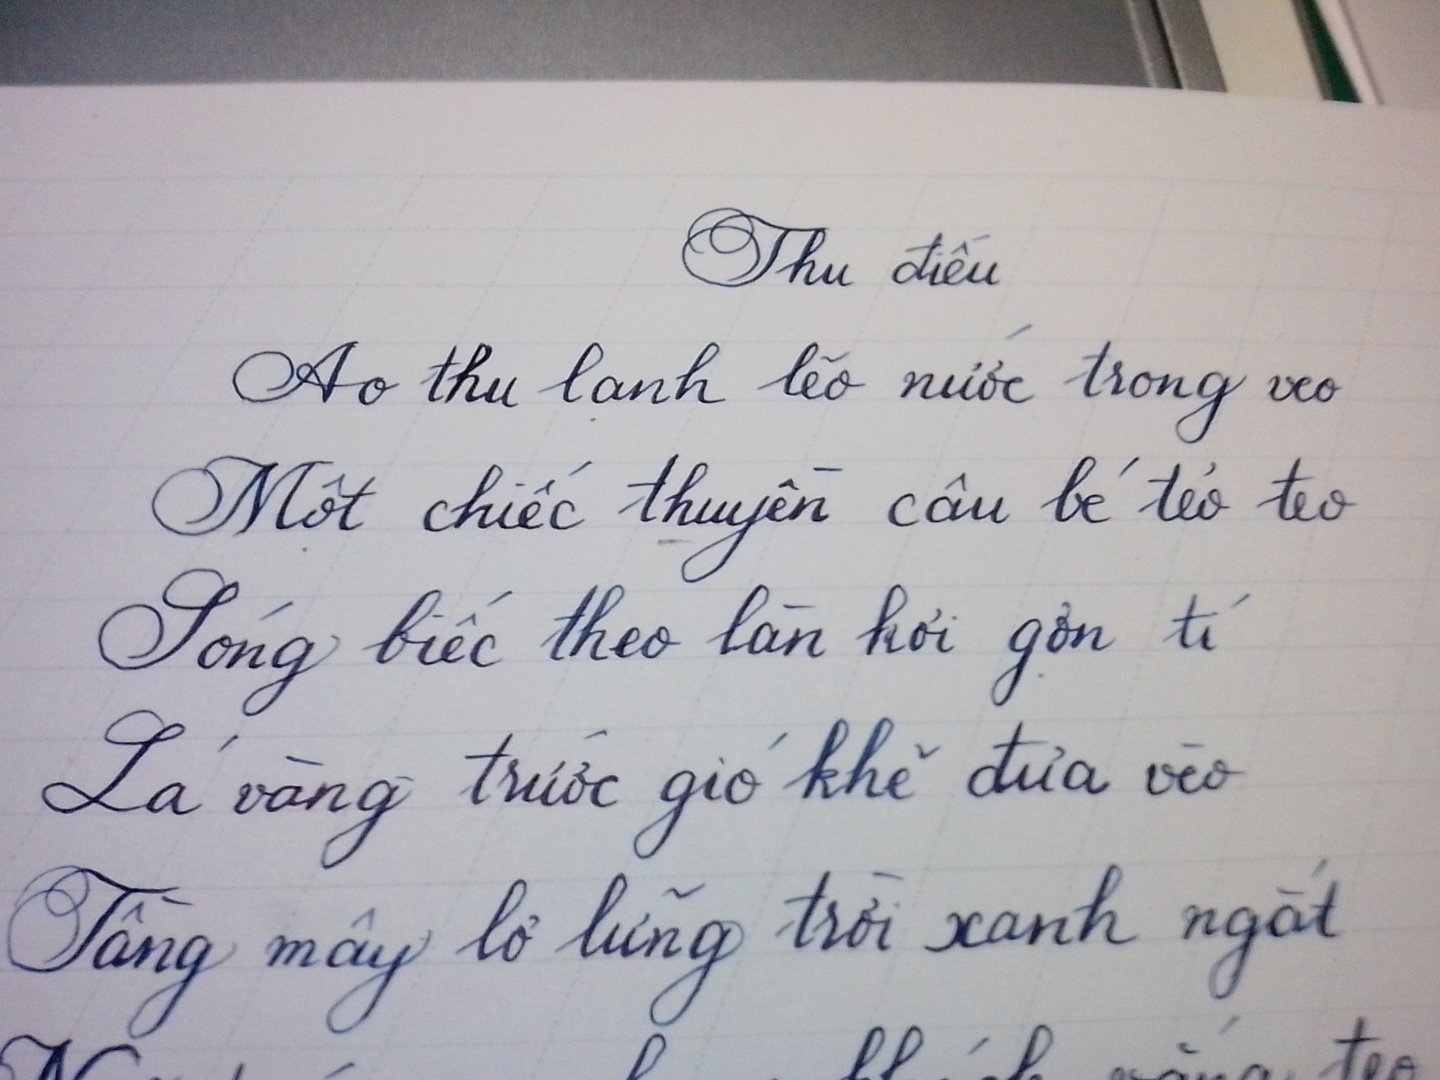 Thu điếu
Ao thu lạnh lẽo nước trong veo
Một chiếc thuyền câu bé tẻo teo
Sóng biếc theo làn hơi gợn tí
Lá vàng trước gió khẽ đưa vèo
Tầng mây lơ lững trời xanh ngắt
khách vắng teo